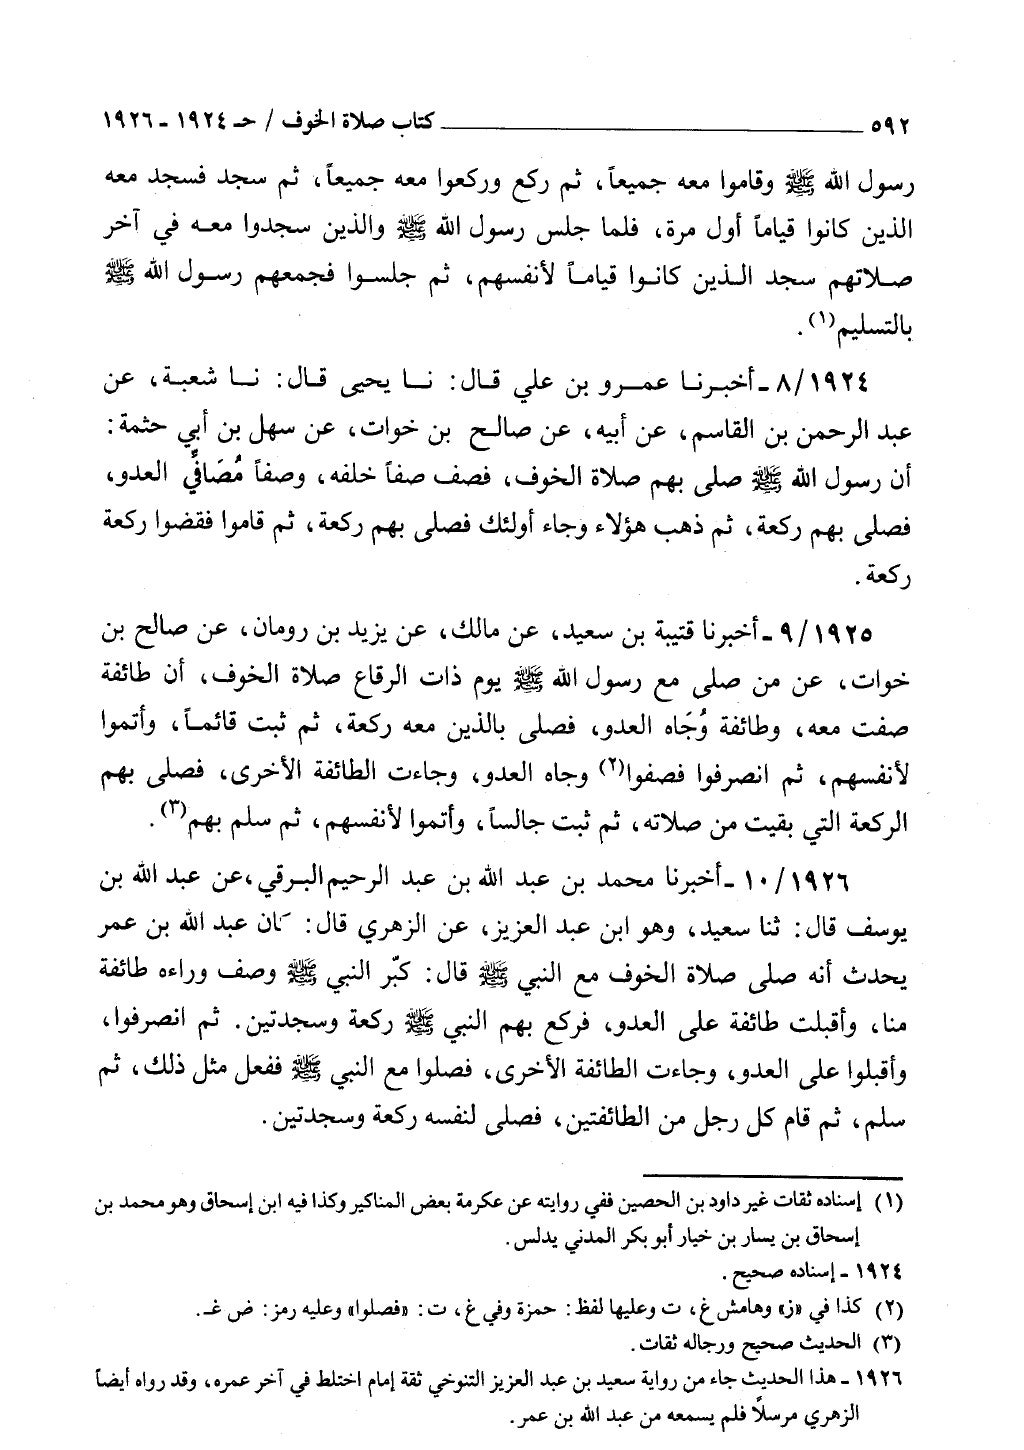 ٥٩٢ ــــــــــــــ كتاب صلاة الخوف / حـ ١٩٢٤ - ١٩٢٦
رسول الله ﷺ وقاموا معه جميعاً، ثم ركع وركعوا معه جميعاً، ثم سجد فسجد معه
الذين كانوا قياماً أول مرة، فلما جلس رسول الله ﷺ والذين سجدوا معه في آخر
صلاتهم سجد الذين كانوا قياماً لأنفسهم، ثم جلسوا فجمعهم رسول الله ﷺ
بالتسليم(١).
٨/١٩٢٤ - أخبرنا عمرو بن علي قال: نا يحيى قال: نا شعبة، عن
عبد الرحمن بن القاسم، عن أبيه، عن صالح بن خوات، عن سهل بن أبي حثمة:
أن رسول الله ﷺ صلى بهم صلاة الخوف، فصف صفاً خلفه، وصفاً مُصَافِّي العدو،
فصلى بهم ركعة، ثم ذهب هؤلاء وجاء أولئك فصلى بهم ركعة، ثم قاموا فقضوا ركعة
ركعة.
٩/١٩٢٥ - أخبرنا قتيبة بن سعيد، عن مالك، عن يزيد بن رومان، عن صالح بن
خوات، عن من صلى مع رسول الله ﷺ يوم ذات الرقاع صلاة الخوف، أن طائفة
صفت معه، وطائفة وُجَاه العدو، فصلى بالذين معه ركعة، ثم ثبت قائماً، وأتموا
لأنفسهم، ثم انصرفوا فصفوا(٢) وجاه العدو، وجاءت الطائفة الأخرى، فصلى بهم
الركعة التي بقيت من صلاته، ثم ثبت جالساً، وأتموا لأنفسهم، ثم سلم بهم(٣).
١٠/١٩٢٦ - أخبرنا محمد بن عبد الله بن عبد الرحيم البرقي، عن عبد الله بن
يوسف قال: ثنا سعيد، وهو ابن عبد العزيز، عن الزهري قال: كان عبد الله بن عمر
يحدث أنه صلى صلاة الخوف مع النبي ﷺ قال: كبّر النبي ﷺ وصف وراءه طائفة
منا، وأقبلت طائفة على العدو، فركع بهم النبي ﷺ ركعة وسجدتين. ثم انصرفوا،
وأقبلوا على العدو، وجاءت الطائفة الأخرى، فصلوا مع النبي ﷺ ففعل مثل ذلك، ثم
سلم، ثم قام كل رجل من الطائفتين، فصلى لنفسه ركعة وسجدتين.
(١) إسناده ثقات غير داود بن الحصين ففي روايته عن عكرمة بعض المناكير وكذا فيه ابن إسحاق وهو محمد بن
إسحاق بن يسار بن خيار أبو بكر المدني يدلس.
١٩٢٤ - إسناده صحيح.
(٢) كذا في «ز» وهامش غ، ت وعليها لفظ: حمزة وفي غ، ت: «فصلوا» وعليه رمز: ض غـ.
(٣) الحديث صحيح ورجاله ثقات.
١٩٢٦ - هذا الحديث جاء من رواية سعيد بن عبد العزيز التنوخي ثقة إمام اختلط في آخر عمره، وقد رواه أيضاً
الزهري مرسلاً فلم يسمعه من عبد الله بن عمر.